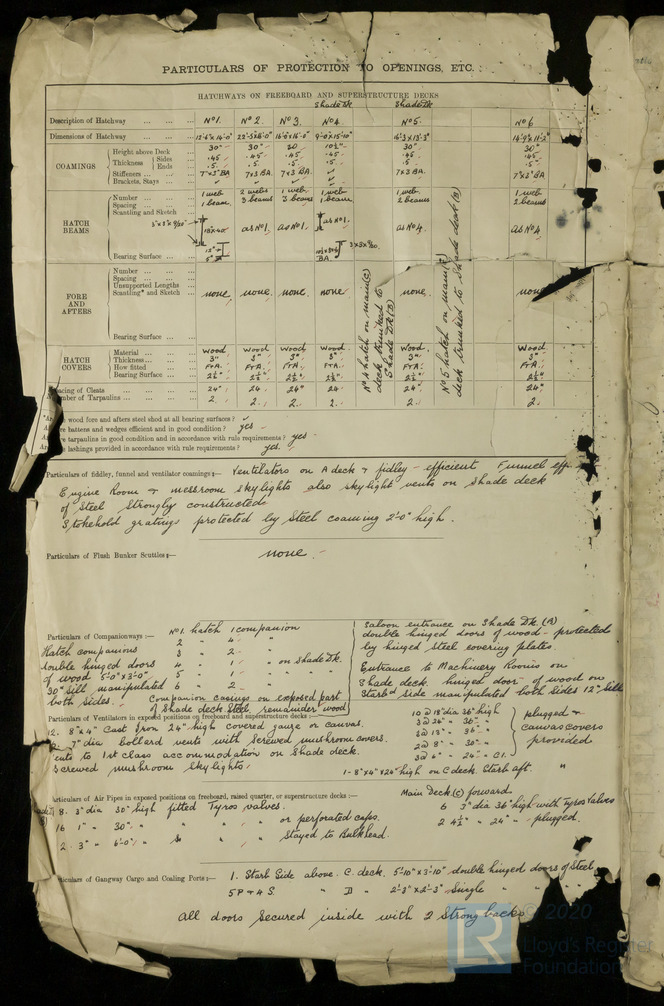 PARTICULARS OF PROTECTION TO OPENINGS, ETC.
HATCHWAYS ON FREEBOARD AND SUPERSTRUCTURE DECKS
Shade Dk Shade Dk
Description of Hatchway No 1. No 2. No 3. No 4 No 5. No 6
Dimensions of Hatchway
COAMINGS
Height above Deck 30" 30" 30 10½" 30" 30"
Thickness Sides .45 .45 .45 .45 .45 .45
Ends .5 .5 .5 .5 .5 .5
Stiffeners 7"x3" BA 7x3 BA. 7x3 BA. 7x3 BA. 7"x3" BA
Brackets, Stays
HATCH BEAMS
Number 1 web 2 webs 1 web 1 web 1 web 1 web
Spacing 1 beam. 3 beams 3 beams 1 beam 2 beams 2 beams
Scantling and Sketch
as No 1. as No 1. as No 1. as No 4. as No 4.
Bearing Surface
FORE AND AFTERS
Number
Spacing
Unsupported Lengths
Scantling* and Sketch none. none. none. none. none. none.
Bearing Surface
No 4 hatch on main (C) deck trunked to Shade Dk (B)
No 5 hatch on main (C) deck trunked to Shade deck (B)
HATCH COVERS
Material Wood Wood Wood Wood. Wood. Wood
Thickness 3" 3" 3" 3" 3" 3"
How fitted F+A. F+A F+A. F+A. F+A. F+A.
Bearing Surface 2½" 2½" 2½" 2½" 2½" 2½"
Spacing of Cleats 24" 24 24" 24 24" 24"
Number of Tarpaulins 2 2. 2. 2. 2. 2.
wood fore and afters steel shod at all bearing surfaces?
battens and wedges efficient and in good condition? yes
tarpaulins in good condition and in accordance with rule requirements? yes
lashings provided in accordance with rule requirements? yes.
Particulars of fiddley, funnel and ventilator coamings:— Ventilators on A deck + fidley - efficient Funnel eff
Engine Room + messroom skylights also skylight vents on Shade deck
of Steel strongly constructed
Stokehold gratings protected by Steel coaming 2'-0" high.
Particulars of Flush Bunker Scuttles:— none.
Particulars of Companionways:— No 1. hatch 1 companion
2 " 4 " "
Hatch companions 3 " 2 " "
double hinged doors 4 " 1 " " on Shade Dk.
of wood 5'-0"x3'-0" 5 " 1 " "
30" Sill manipulated 6 " 2 " "
both sides. Companion casings on exposed part
of Shade deck Steel remainder wood
Saloon entrance on Shade Dk. (A)
double hinged doors of wood - protected
by hinged steel covering plates.
Entrance to Machinery Rooms on
Shade deck. hinged door of wood on
Starbd side manipulated both sides 12" Sill
Particulars of Ventilators in exposed positions on freeboard and superstructure decks:—
12. 8"x4" Cast Iron 24" high covered gauze or canvas.
7" dia bollard vents with screwed mushroom covers.
vents to 1st class accommodation on Shade deck.
Screwed mushroom Skylights.
10 @ 18" dia 36" high
3 @ 24" " 36" "
3 @ 13" " 36" "
2 @ 8" " 30" "
3 @ 6" " 24" " C.I.
plugged + canvas covers provided
1-8"x4"x24" high on C deck. Starb aft. "
Particulars of Air Pipes in exposed positions on freeboard, raised quarter, or superstructure decks:—
8. 3" dia 30" high fitted Tyros valves.
16 1" " 30" " " " or perforated caps.
2. 3" " 6'-0" " Stayed to Bulkhead.
Main Deck (C) forward.
6 3" dia 36" high with Tyros valves
2 4½" " 24" " plugged.
Particulars of Gangway Cargo and Coaling Ports:— 1. Starb Side above C. deck. 5'-10"x3'-10" double hinged doors of Steel
5 P + 4 S. " D " 2'-8"x2'-3" Single " "
All doors Secured inside with 2 Strongbacks
© 2020
LR
Lloyd's Register
Foundation